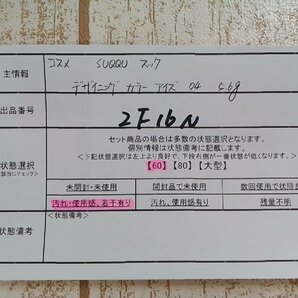 主情報
コスメ SUQQU スック
デザイニング カラー アイズ 04 5.6g
出品番号
2F16N
状態選択
(該当にチェック)
セット商品の場合は多数の状態となります。
個別情報は状態備考に記載します。
<下記状態選択は左上より良好で、下段右側が一番状態が低くなります>
【60】【80】【大型】
未開封・未使用
開封品で未使用
数回使用で状態良
汚れ・使用感、若干有り
汚れ、使用感有り
残量不明
状態備考
<状態備考>